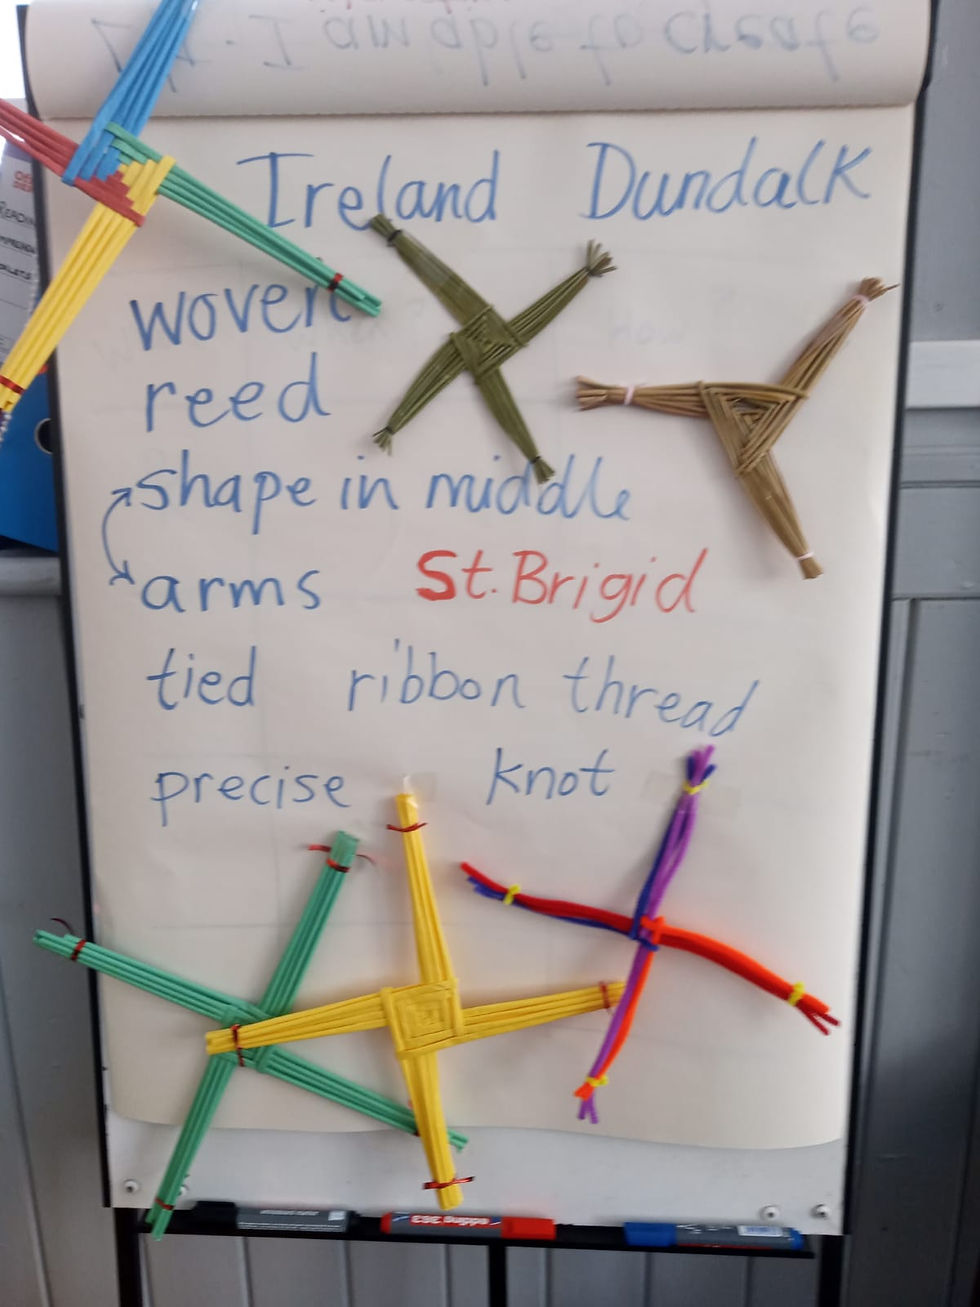 I am able to create
Ireland Dundalk
woven
reed
shape in middle
arms St. Brigid
tied ribbon thread
precise knot
edding 363